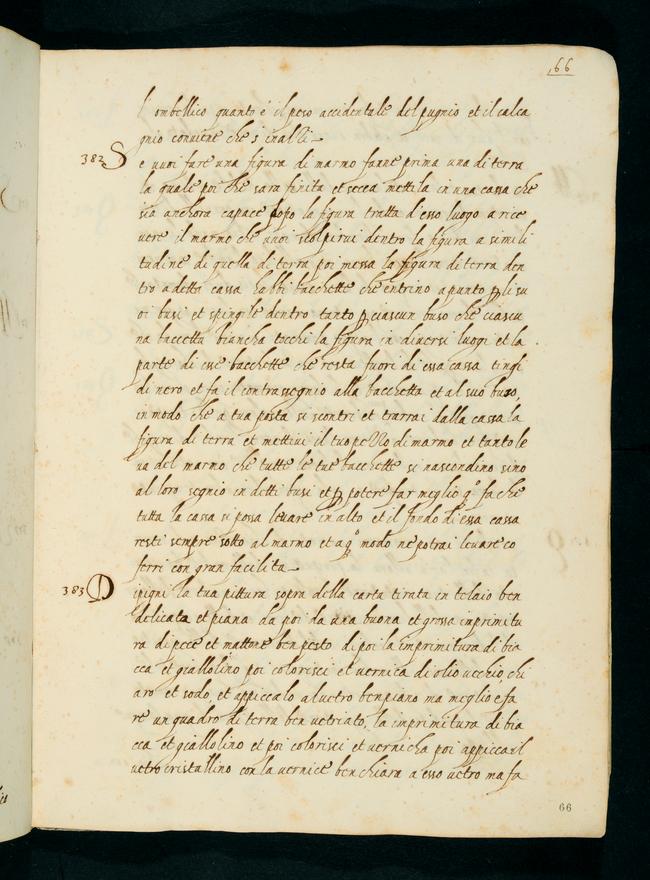 ,66
l ombellico quanto è il peso accidentale del pugnio et il calca
gnio conviene che s'inalzi
382 Se vuoi fare una figura di marmo fanne prima una di terra
la quale poi che sara finita et secca mettila in una cassa che
sia anchora capace dopo la figura tratta d'esso luogo a rice
vere il marmo che vuoi scolpirvi dentro la figura a simili
tudine di quella di terra poi messa la figura di terra den
tro a detta cassa habbi bacchette che entrino apunto p li su
oi busi et spingile dentro tanto p ciascun buso che ciascu
na bacetta biancha tocchi la figura in diversi luogi et la
parte di esse bacchette che resta fuori di essa cassa tingi
di nero et fa il contrassegnio alla bacchetta et al suo buso,
in modo che a tua posta si scontri et trarrai dalla cassa la
figura di terra et mettivi il tuo pezzo di marmo et tanto le
va del marmo che tutte le tue bacchette si nascondino sino
al loro segnio in detti busi et p potere far meglio qo fa che
tutta la cassa si possa levare in alto et il fondo d'essa cassa
resti sempre sotto al marmo et a qo modo ne potrai levare co
ferri con gran facilita
383 Dipigni la tua pittura sopra della carta tirata in telaio ben
delicata et piana da poi da una buona et grossa imprimitu
ra di pece et mattone ben pesto di poi la imprimitura di bia
cca et giallolino poi colorisci et vernica di olio vechio, chi
aro et sodo, et appiccalo al vetro ben piano ma meglio e fa
re un quadro di terra ben vetriato, la imprimitura di bia
cca et giallolino et poi colorisci et vernicha poi appicca il
vetro cristallino con la vernice ben chiara a esso vetro ma fa
66